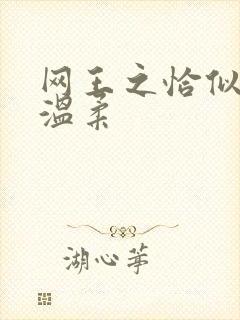 网王之恰似
温柔
湖心莘